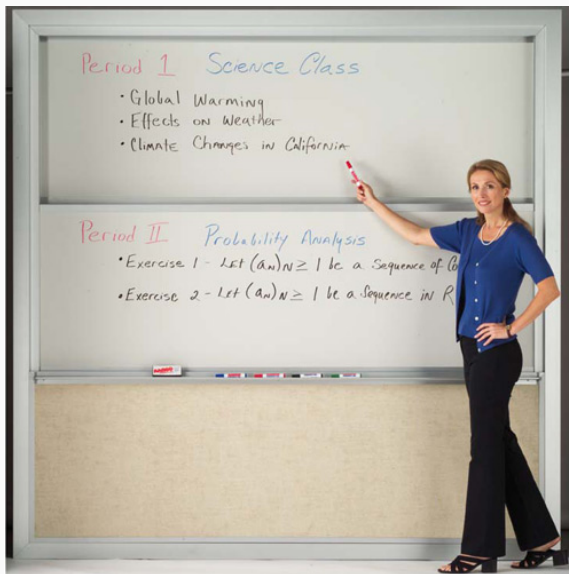 Period 1 Science Class
• Global Warming
• Effects on Weather
• Climate Changes in California
Period II Probability Analysis
• Exercise 1 - Let (an)N ≥ 1 be a Sequence of Co
• Exercise 2 - Let (an)N ≥ 1 be a Sequence in R